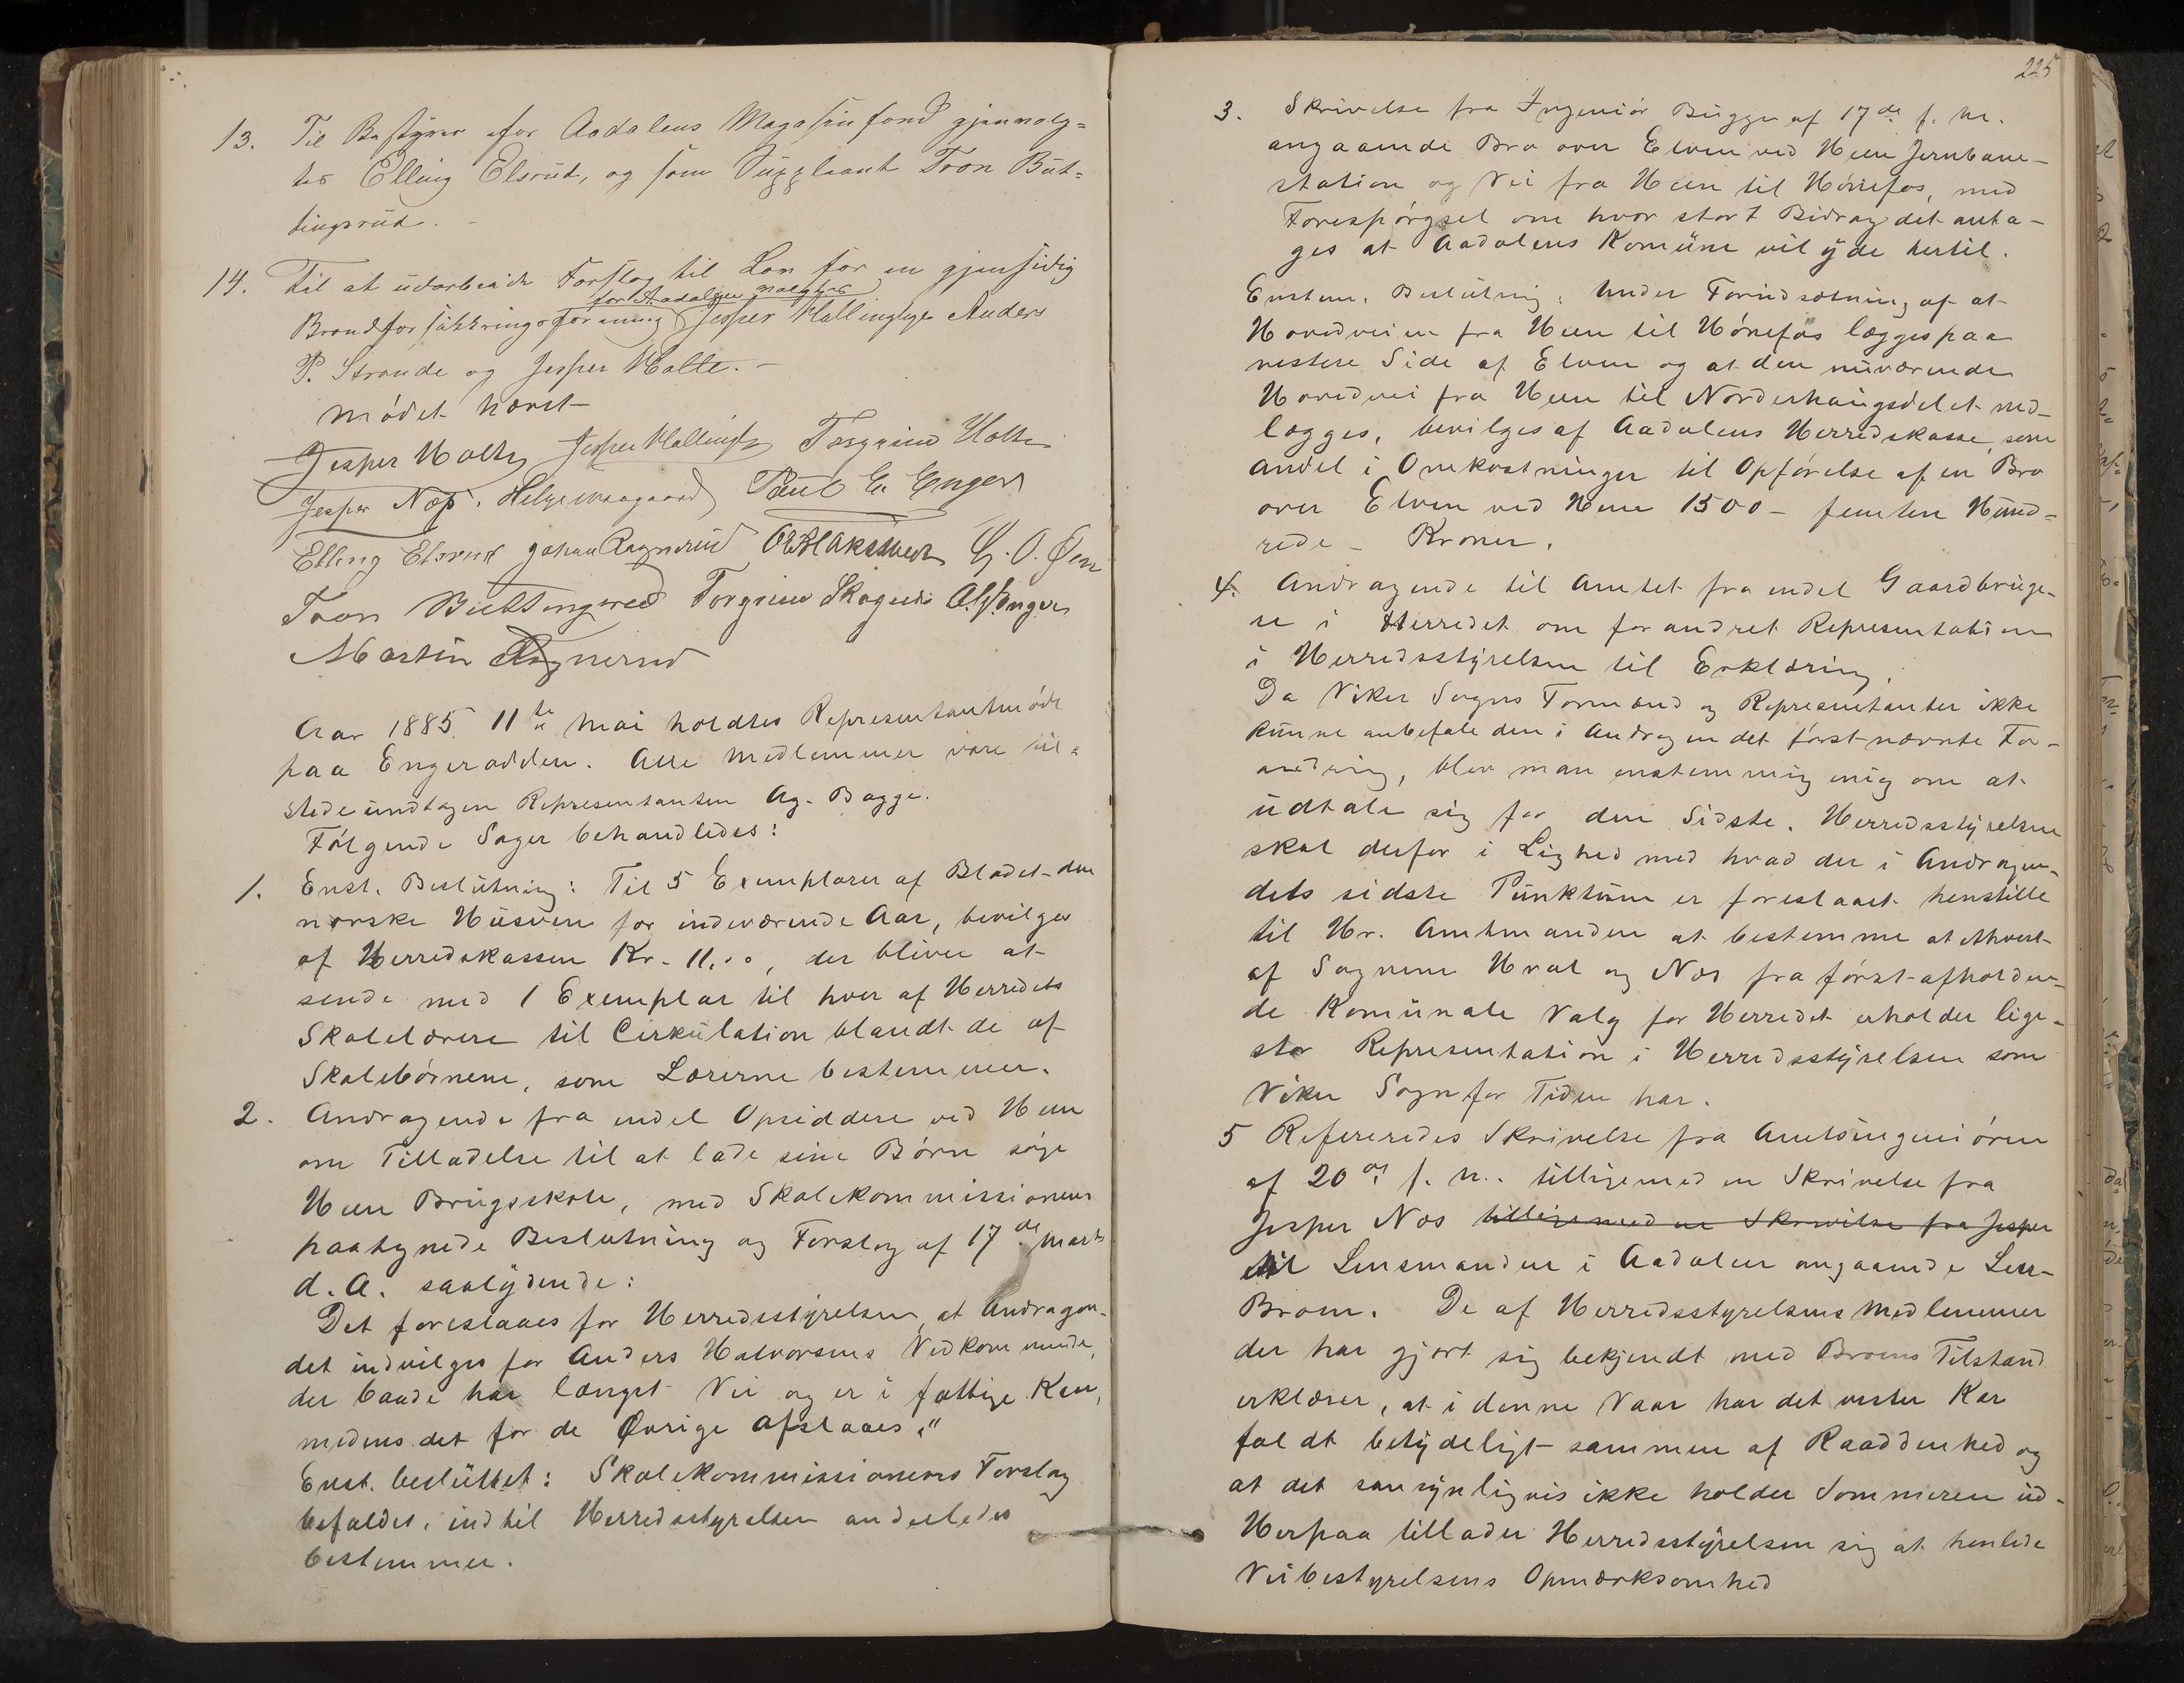 13. Til Bestyrer for Aadalens Magasinfond gjenvalg=
tes Elling Elsrud, og som Suppleant Tron But=
tingsrud. -
14. Til at udarbeide Forslag til Lov for en gjensidig
for Aadalen valgtes
Brandforsikkringsforening Jesper Hallingby Anders
P. Strande og Jesper Holte. -
Mödet hævet
Jesper Holte Jesper Hallingby Torgrim Holte
Jesper Næs. Helge Paul E. Enger
Elling Elsrud Johan Ragnerud G. O. Øen
Tron Buttingsrud Torgrim Skagnæs
Martin Ragnerud
Aar 1885 11te Mai holdtes Representantmöde
paa Engerodden. Alle Medlemmer vare til=
stede undtagen Representanten Ag. Bagge.
Fölgende Sager behandledes:
1. Enst. Beslutning: Til 5 Exemplarer af Bladet den
norske Husven for indeværende Aar, bevilges
af Herredskassen Kr. 11.00, der bliver at
sende med 1 Exemplar til hver af Herredets
Skolelærere til Cirkulation blandt de af
Skolebörnene, som Lærerne bestemmer.
2. Andragende fra endel Opsiddere ved Heen
om Tilladelse til at lade sine Börn söge
Heen Brugsskole, med Skolekommissionens
paategnede Beslutning og Forslag af 17de Marts
d. A. saalydende:
Det foreslaaes for Herredsstyrelsen, at Andragen-
det indvilges for Anders Halvorsens Vedkommende,
der baade har længst Vei og er i fattige Kaar,
medens det for de Øvrige afslaaes."
Enst. besluttet: Skolekommissionens Forslag
bifaldes, indtil Herredsstyrelsen anderledes
bestemmer.
225
3. Skrivelse fra Ingeniör Bugge af 17de f. M.
angaaende Bro over Elven ved Heen Jernbane-
station og Vei fra Heen til Hönefos, med
Forespörgsel om hvor stort Bidrag det anta-
ges at Aadalens Komune vil yde hertil.
Enstem. Beslutning: Under Forudsætning af at
Hovedveien fra Heen til Hönefos lægges paa
vestere Side af Elven og at den nuværende
Hovedvei fra Heen til Norderhaugsdelet ned-
lægges, bevilges af Aadalens Herredskasse, som
Andel i Omkostninger til Opförelse af en Bro
over Elven ved Heen 1500 - femten Hund-
rede - Kroner.
4. Andragende til Amtet fra endel Gaardbruge-
re i Herredet om forandret Representation
i Herredsstyrelsen til Erklæring.
Da Viker Sogns Formænd og Representanter ikke
kunne anbefale den i Andragendet först nævnte For-
andring, blev man enstemmig enig om at
udtale sig for den Sidste. Herredsstyrelsen
skal derfor i Lighed med hvad der i Andragen-
dets sidste Punktum er foreslaaet henstille
til Hr. Amtmanden at bestemme at ethvert
af Sognene Hval og Nes fra först afholden-
de Komunale Valg for Herredet erholder lige-
stor Representation i Herredsstyrelsen som
Viker Sogn for Tiden har.
5 Refereredes Skrivelse fra Amtsingeniören
af 20de f. M. tilligemed en Skrivelse fra
Jesper Næs tilligemed en Skrivelse fra Jesper
til Lensmanden i Aadalen angaaende
Broen. De af Herredsstyrelsens Medlemmer
der har gjort sig bekjendt med Broens Tilstand
erklærer, at i denne Vaar har det vestre Kar
faldt betydeligt sammen af Raaddenhed og
at det sansynligvis ikke holder Sommeren ud.
Herpaa tillader Herredsstyrelsen sig at henlede
Veibestyrelsens Opmærksomhed